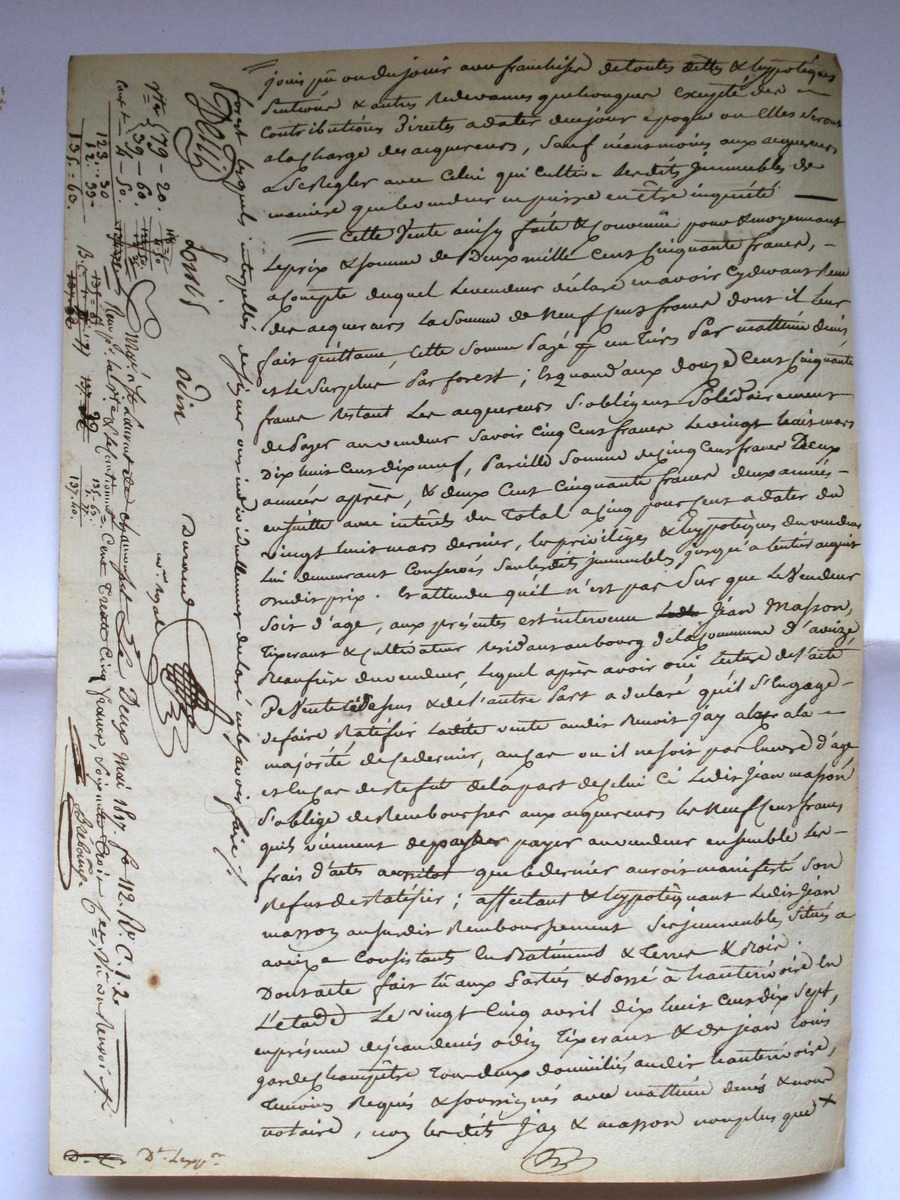 jouis pû ou du jouir avec franchise de toutes dettes & hypotèques
Pentions & autres Redevances quelconques excepté des
Contributions Directes a dater du jour époque ou Elles seront
a la charge des acquereurs, Sauf néanmoins aux acquereurs
a Se Regler avec Celui qui Cultive Les dits Jmmeubles de
maniere que le vendeur ne puisse en être inquiété
Cette Vente ainsy faite & convenüe pour & moyennant
Le prix & somme de Deux mille Cent Cinquante francs,
acompte duquel Le vendeur déclare en avoir Cydevant Reçu
des acquereurs La Somme de Neuf Cent francs dont il Leur
fait quittance, Cette Somme Payé un Tiers Par mathieu denis
et Le Surplus Par forest ; Et quand aux douze Cent Cinquante
francs Restant Les acquereurs S'obligent Solidairement
de Payer au vendeur Savoir Cinq Cent francs Le vingt huit mars
Dix huit Cent dix neuf, Pareille Somme de Cinq Cent francs Deux
années après, & deux Cent Cinquante francs deux années
ensuitte avec intérêts du Total a Cinq pour Cent a dater du
vingt huit mars dernier, les privilèges & hypotèques du vendeur
Lui demeurant Conservés Sur les dits jmmeubles jusqu'a l'entier acquit
dudit prix. Et attendu qu'il n'est pas Sur que Le Vendeur
Soit d'age, aux présentes est intervenu Jean Masson,
Tixerant & Cultivateur Résidant au bourg de la Commune d'aveize,
Beaufrère du vendeur, Lequel après avoir oüi Lecture de l'acte
De Vente ci dessus & de l'autre Part a déclaré qu'il S'engage
de faire Ratéfier Ladite vente audit Benoit jay a la
majorité de Ce dernier, au Cas ou il ne soit pas Encore d'age
et En Cas de Refus de la part de Celui Ci Ledit Jean masson
S'oblige de Rembourser aux acquereurs les Neuf Cent francs
qu'ils viennent de payer au vendeur ensemble les
frais d'actes aussitot que le dernier auroit manifesté Son
Refus de Ratéfier ; affectant & hypotéquant Ledit Jean
masson au susdit Remboursement Ses jmmeubles Situés a
aveize Consistants En Batiments & Terres & Bois.
Dont acte fait Lû aux Parties & Passé à hauterivoire En
L'etude Le vingt Cinq avril dix huit Cent dix Sept,
en présence de jean denis odin Tixerant & de jean Louis
garde Champêtre Tous deux domiciliés audit hauterivoire,
Temoins Requis & Soussignés avec mathieu denis & nous
notaire, non les dits Jay & masson non plus que
forest lesquels interpellés de signer ont individuellement declaré ne le savoir faire
Denis
Louis
odin
Durand
nre. royal
Enregé. à St. Laurent de chamousset Le Deux mai 1817. fo 112. Ro. C. 1. 2.
Cent Trente Cinq francs, Soixante Trois
79 - 20.
39 - 60.
4 - 50.
123. 30
12. 33
135 = 60.
137. 40.